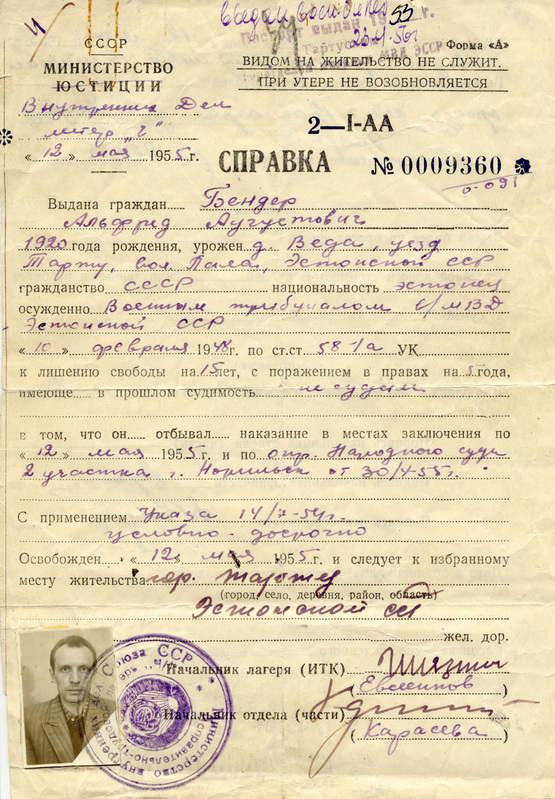 СССР
МИНИСТЕРСТВО
ЮСТИЦИИ
Внутренних Дел
литер „Ч"
«12» мая 1955 г.
Форма «А»
ВИДОМ НА ЖИТЕЛЬСТВО НЕ СЛУЖИТ.
ПРИ УТЕРЕ НЕ ВОЗОБНОВЛЯЕТСЯ
2—I-АА
СПРАВКА № 0009360
Выдана граждан Бендер
Альфред Аугустович
1920 года рождения, урожен д. Веда, уезд
Тарту, вол. Пала, Эстонской ССР
гражданство СССР национальность эстонец
осужденно Военным трибуналом в/МВД
Эстонской ССР
«10» февраля 1948 г. по ст.ст 58-1а УК
к лишению свободы на 15 лет, с поражением в правах на 5 года,
имеюще в прошлом судимость не судим
в том, что он отбывал наказание в местах заключения по
«12» мая 1955 г. и по опр. Народного суда
2 участка г. Норильск от 30/4-55 г.
С применением Указа 14/7-54 г.
условно-досрочно
Освобожден «12» мая 1955 г. и следует к избранному
месту жительства гор. Тарту
(город, село, деревня, район, область)
Эстонской ССР
жел. дор.
Начальник лагеря (ИТК)
(Евсеинов)
Начальник отдела (части)
(Карасева)
Союза ССР
Министерство внутренних